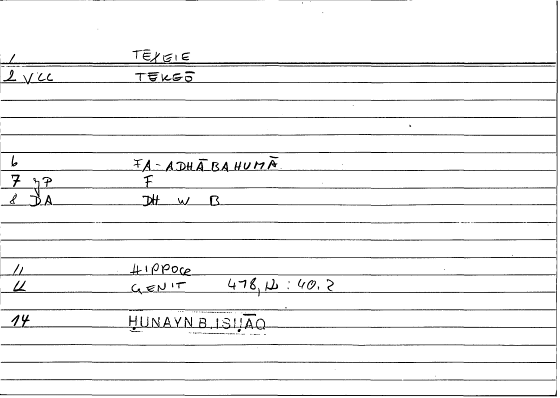 1 TĒXEIE
2 TĒKEŌ
6 FA-ADHĀBAHUMĀ
7 F
8 DA DH W B
11 HIPPOCR
GENIT 478, : 40.2
14 ḤUNAYN B. ISḤĀQ